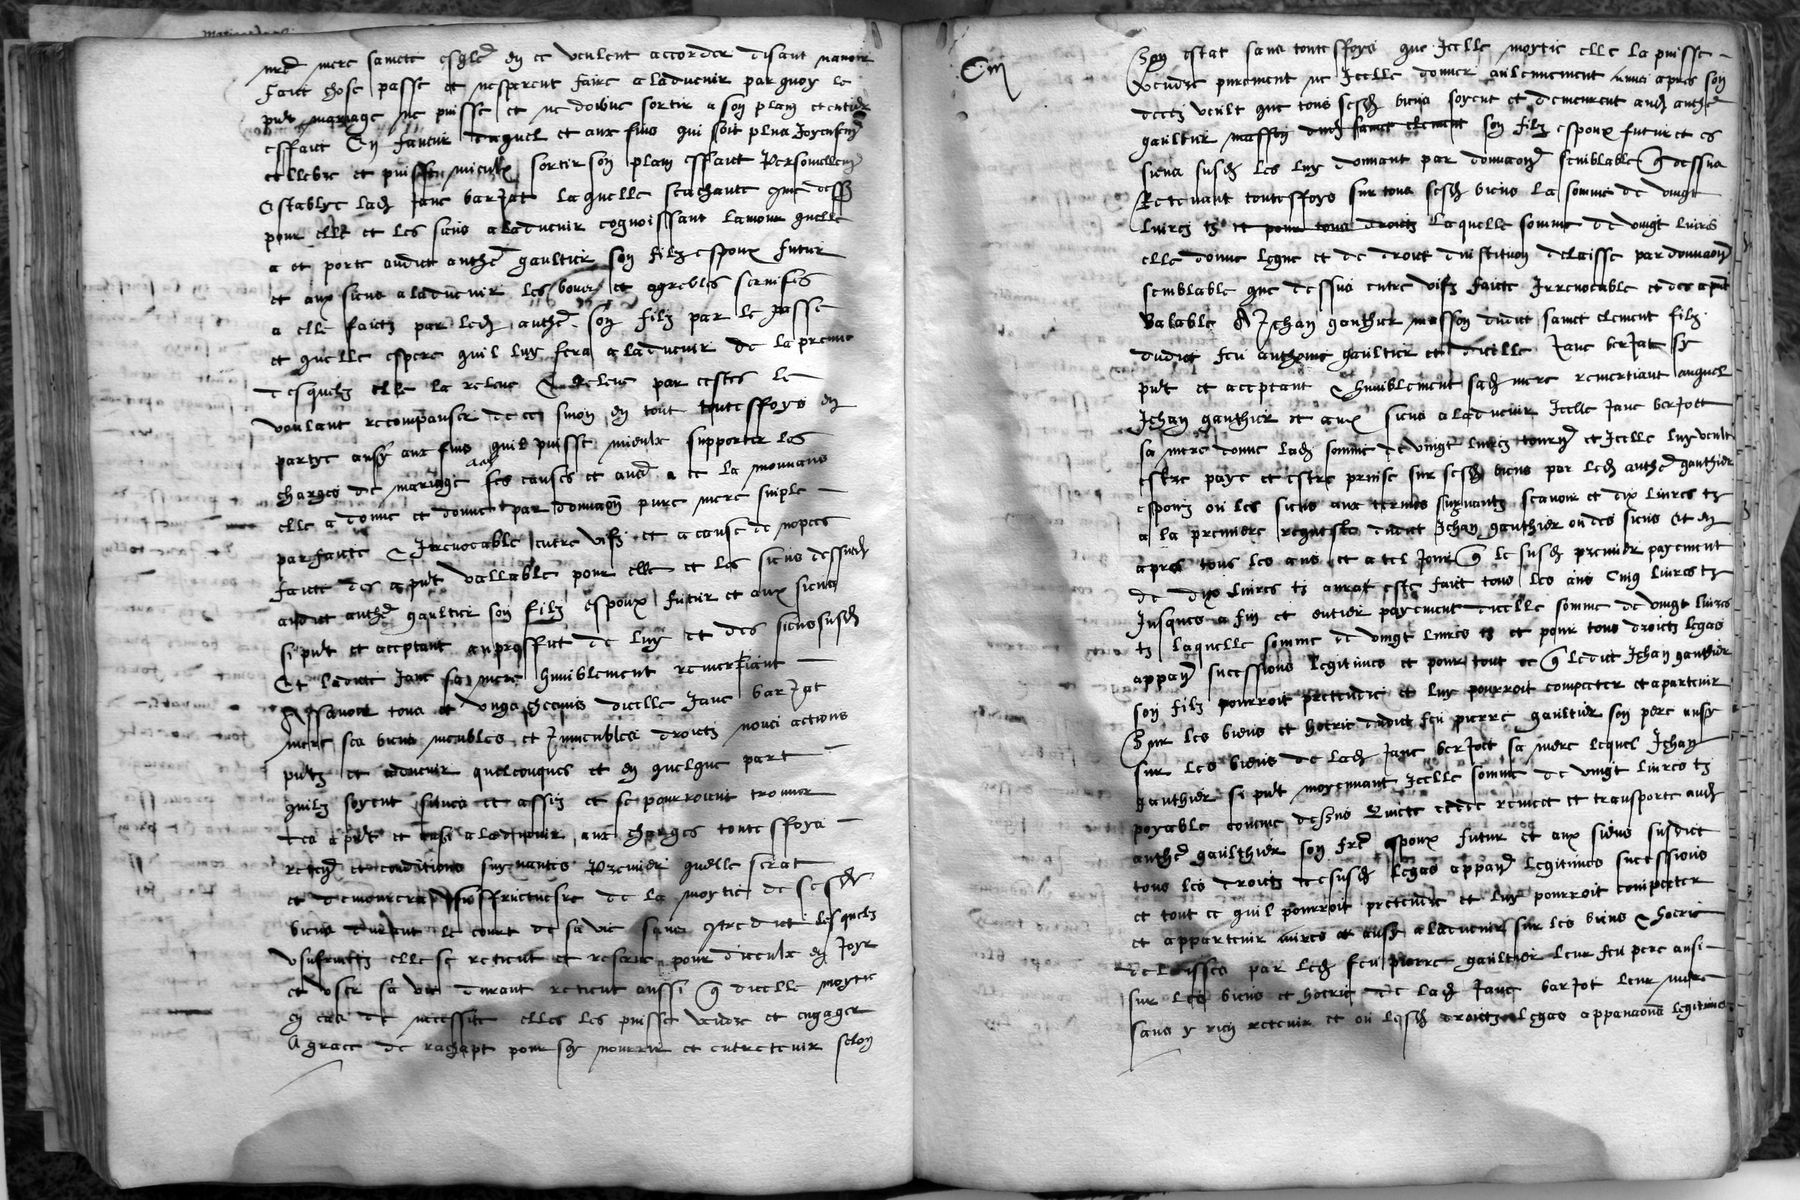 nre mere saincte esglise en ce veulent accorder disant n'avoir
faict chose passe et n'esperent faire a ladvenir par quoy le
pnt mariage ne puisse et ne doibve sortir a son plain et entier
effaict En faveur duquel et aux fins qui soit plus
et puisse mieulx sortir son plain effaict Personellemt
Establye lad Jane barJat laquelle scachante que dess
pour elle et les siens a ladvenir cognoissant lamour quelle
a et porte audict anthe gaultier son filz espoux futur
et aux siens a ladvenir les bons et agrebles services
a elle faictz par led anthe son filz par le passe
et quelle espere quil luy fera a ladvenir de la preuve
desquelz elle la releve & releve par cestes le
voulant recompanser de ce sinon en tout touteffoys en
partye ausy aux fins quil puisse mieulx supporter les
charges de mariage ses causes et aud a ce la mouvans
elle a donne et donne par donnaon pure mere simple
parfaicte & Irrevocable entre vifz et a cause de nopces
faicte des a pnt vallable pour elle et les siens dessusd
audict anthe gaultier son filz espoux futur et aux siens
si pnt et acceptant au proffit de luy et des siens susd
Et ladicte Jane sa mere humblement remerciant
Assavoir tous et ungs checuns dicelle Jane barJat
mere ses biens meubles et Jmmeubles droictz noms actions
pntz et advenir quelconques et en quelque part
quilz soyent situes et assis et se pourroient trouver
des a pnt et a ladvenir aux charges touteffoys
reten et conditions suyvantes Premier quelle serat
et demourera usuffructuesre de la moytie de sesd
biens durant le court de sa vie sans contredict lesquelz
usufruictz elle se retient et reserve pour diceulx en Joyr
et user sa vie durant retient aussi q dicelle moytie
en cas de necessite elles les puisse vendre et engager
A grace de rachapt pour soy nourrir et entretenir selon
Son estat sans touteffoys que Jcelle moytie elle la puisse
Vendre purement ne Jcelle donner aulcunement mais apres son
deces veult que tous sesd biens soyent et demeurent aud anthe
gaultier masson dud sainct clement son filz espoux futur et es
siens susd les luy donnant par donnaon semblable q dessus
Retenant touteffoys sur tous sesd biens la somme de vingt
livres tz et pour tous droictz laquelle somme de vingt livres
elle donne legue et de droict dinstitution delaisse par donnaon
semblable que dessus entre vifz faicte Jrrevocable et des a pnt
Valable A Jehan gauthier masson dudict sainct clement filz
dudict feu anthoine gaultier et dicelle Jane berJat sy
pnt et acceptant & humblement sad mere remertiant auquel
Jehan gauthier et aux siens a ladvenir Jcelle Jane berJott
sa mere donne lad somme de vingt livres tourn et Jcelle luy veult
estre paye et estre prinse sur sesd biens par led anthe gauthier
espoux ou les siens aux termes suyvantz scavoir et dix livres tz
a la premiere requeste dudict Jehan gauthier ou des siens Et en
apres tous les ans et a tel Jour q le susd premier payement
de dix livres tz aurat este faict tous les ans Cinq livres tz
Jusques a fin et entier payement dicelle somme de vingt livres
tz laquelle somme de vingt livres tz et pour tous droictz legas
appan successions legitimes et pour tout ce q ledict Jehan gauthier
son filz pourroit pretendre et luy pourroit competer et apartenir
Sur les biens et hoerie dudict feu pierre gaultier son pere ausy
sur les biens de lad Jane berJott sa mere lequel Jehan
gauthier si pnt moyennant Jcelle somme de vingt livres tz
payable comme dessus Quicte cedde remect et transporte aud
anthe gaulthier son fre espoux futur et aux siens susdict
tous les droictz susd legas appan legitimes successions
et tout ce quil pourroit pretendre et luy pourroit competer
et appartenir ores et ausy a ladvenir sur les biens & hoerie
delaisses par led feu pierre gaultier leur feu pere ausi
sur les biens et hoerie de lad Jane barJot leur mere
sans y rien retenir et ou lesd droictz legas appanaons legitimes